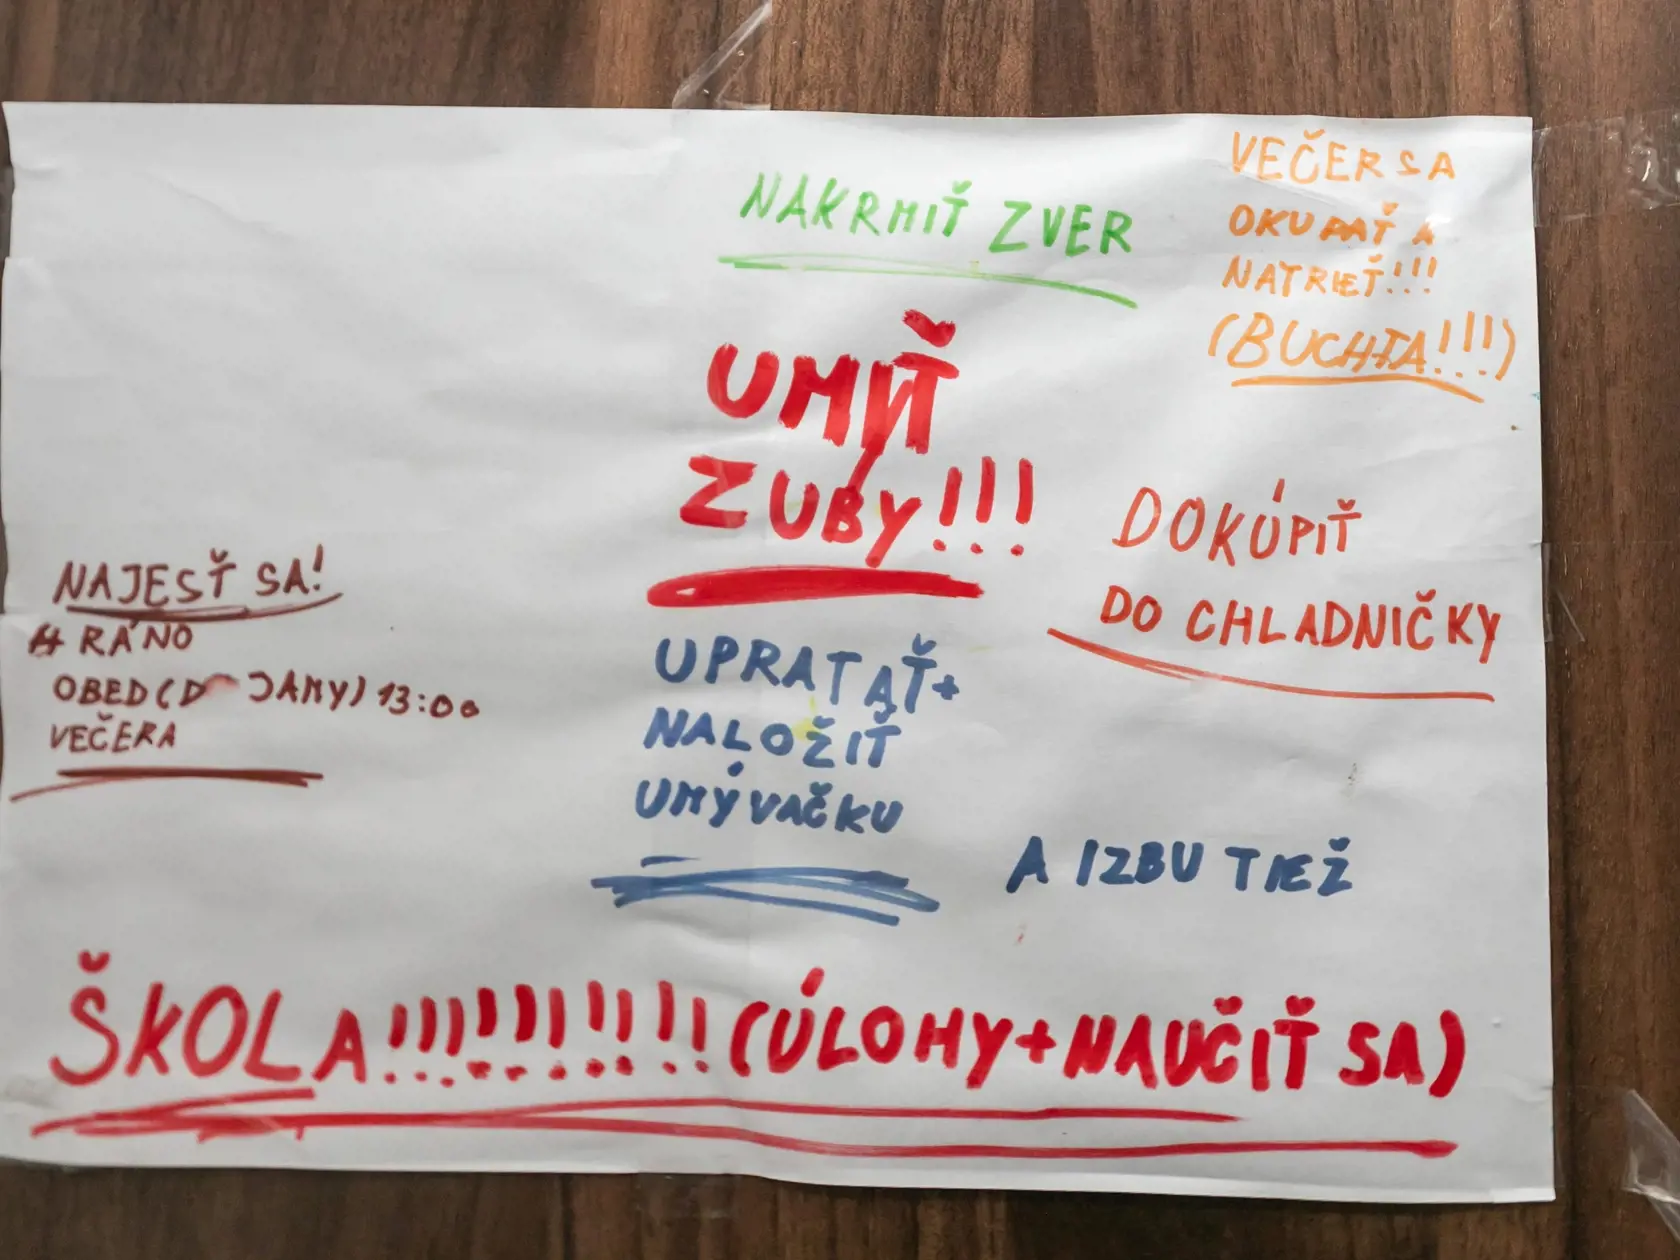 NAKRMIŤ ZVER
VEČER SA
OKUPAŤ A
NATRIEŤ!!!
(BUCHTA!!!)
UMIŤ
ZUBY!!!
DOKÚPIŤ
DO CHLADNIČKY
NAJESŤ SA!
RÁNO
OBED (D JAMY) 13:00
VEČERA
UPRATAŤ+
NALOŽIŤ
UMÝVAČKU
A IZBU TIEŽ
ŠKOLA!!!!!!!!!!! (ÚLOHY+NAUČIŤ SA)